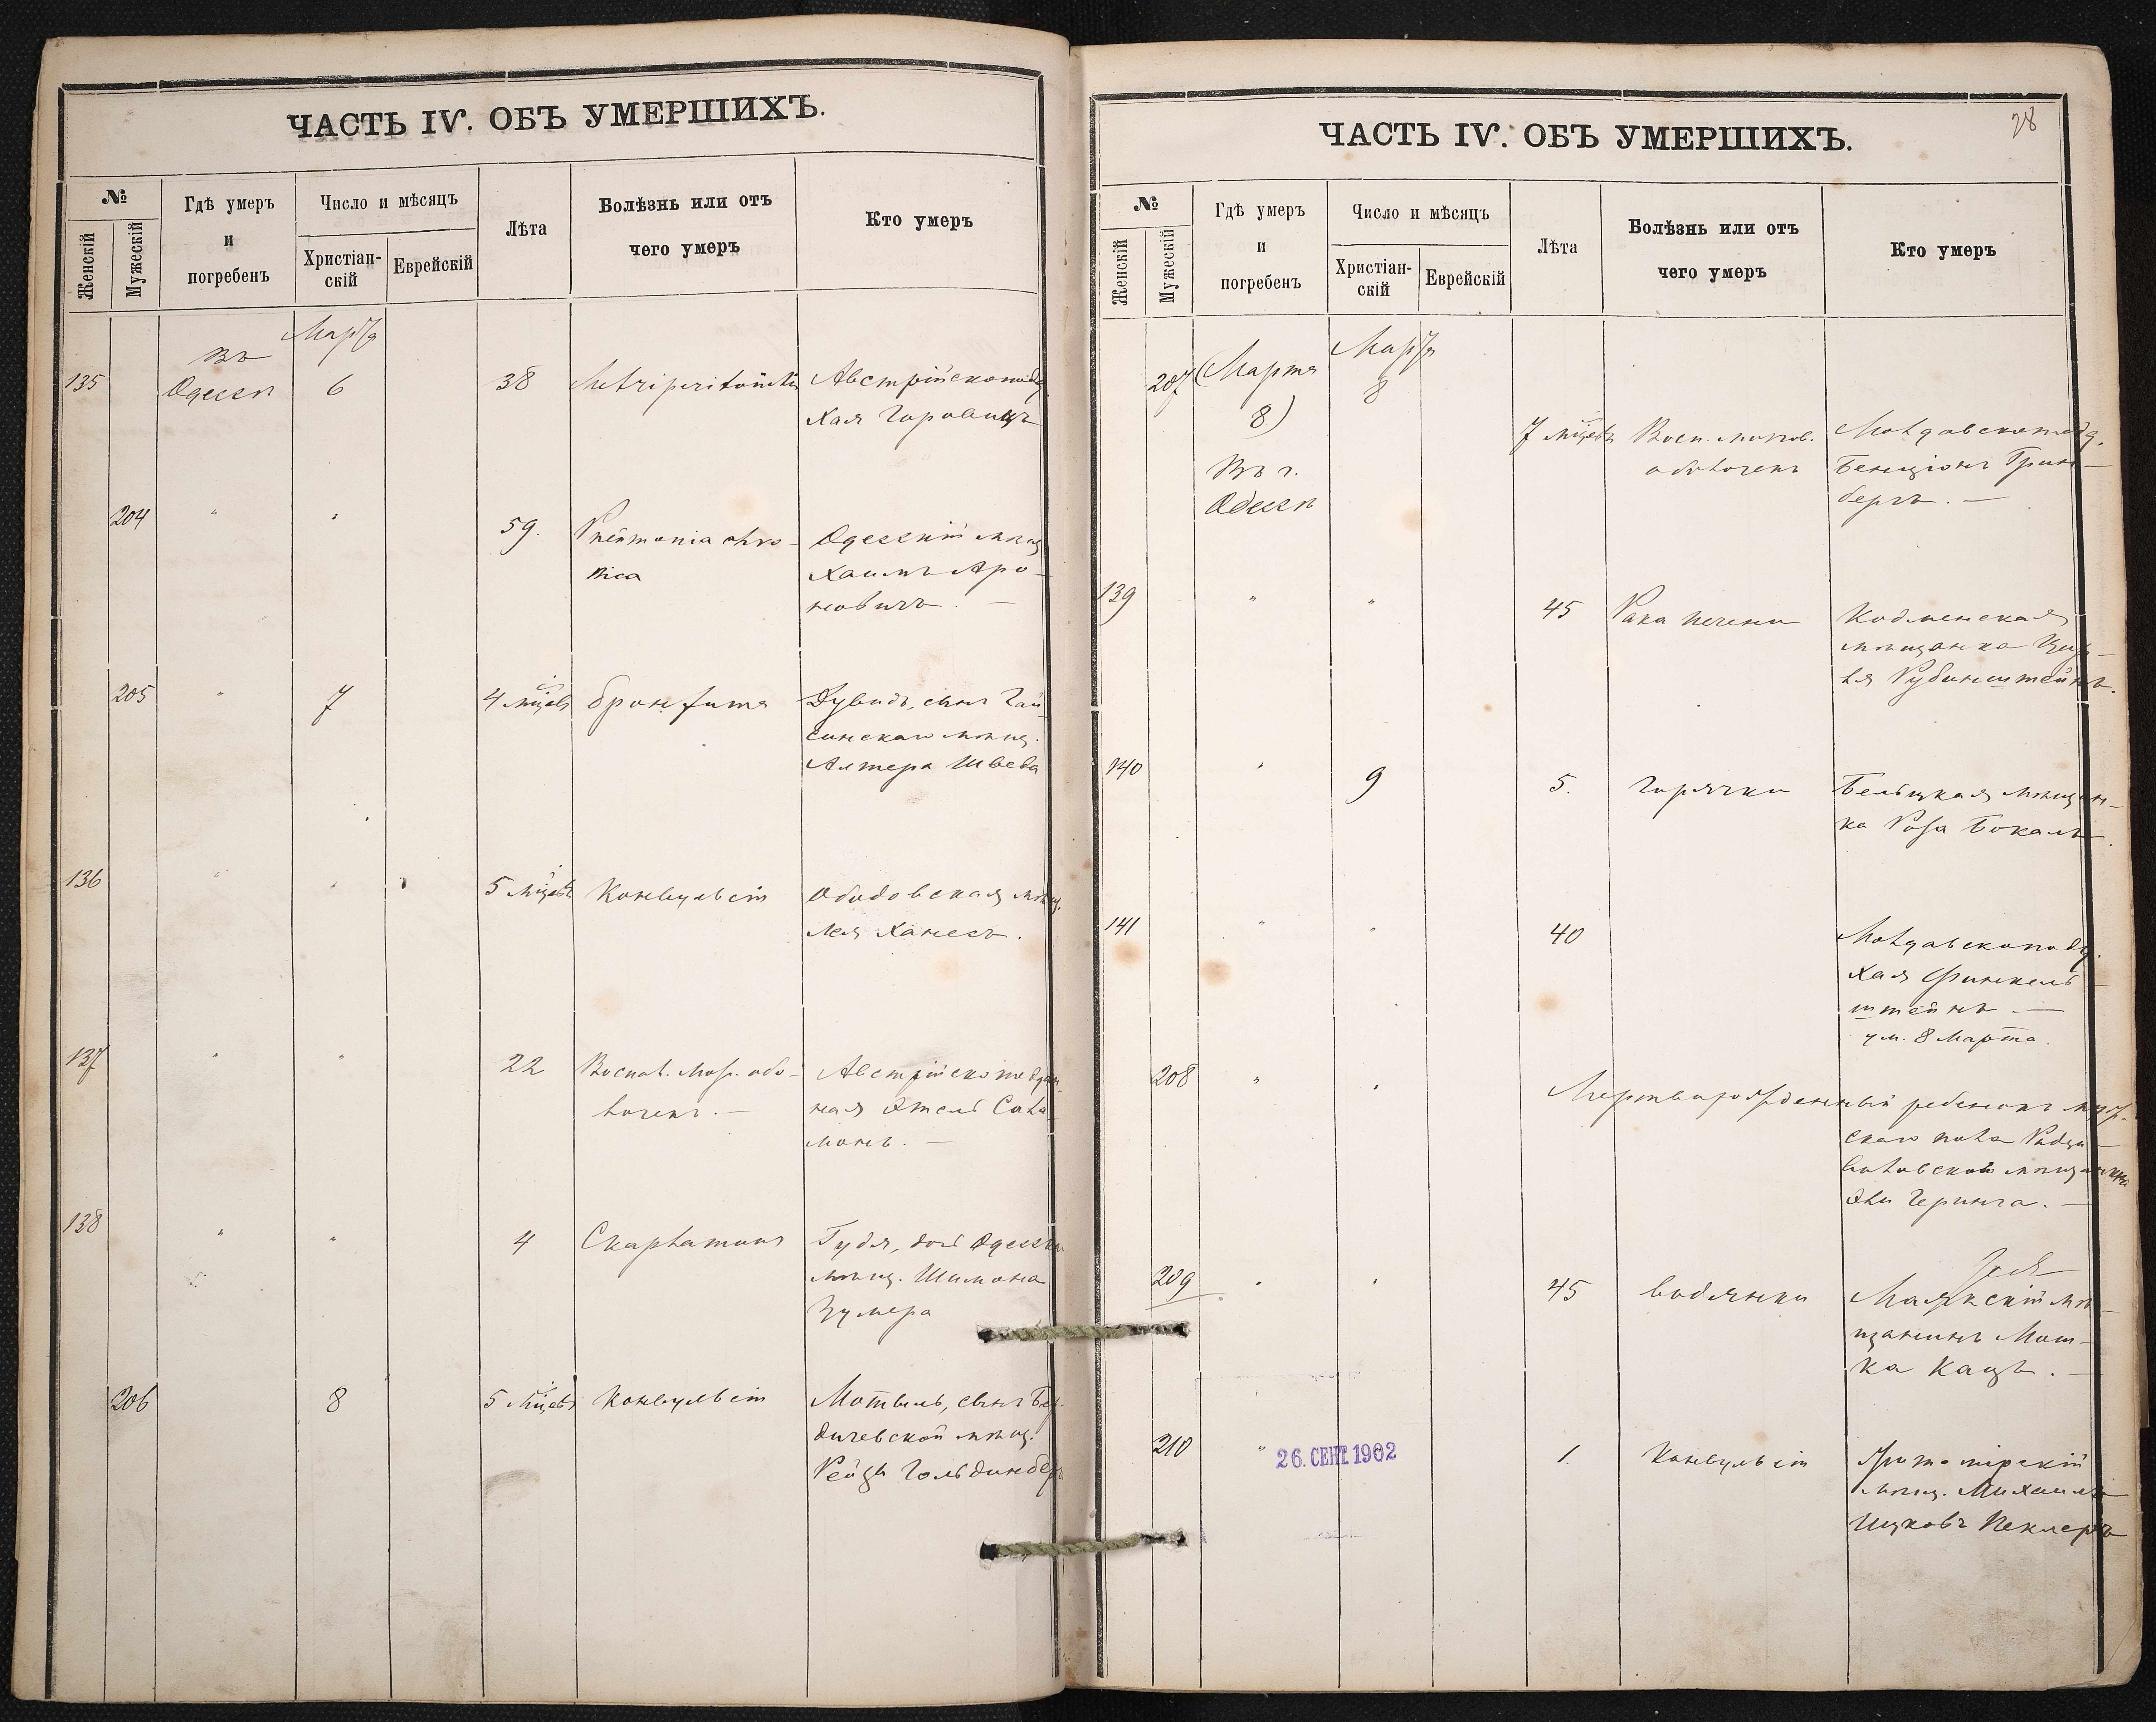 ЧАСТЬ IV. ОБЪ УМЕРШИХЪ.
№
Женскій
Мужескій
Гдѣ умеръ
и
погребенъ
Число и мѣсяцъ
Христіан-
скій
Еврейскій
Лѣта
Болѣзнь или отъ
чего умеръ
Кто умеръ
Въ Марта
135 Одессѣ 6 38 Metriperitonitis Австрійскоподд.
Хая Горовицъ
204 " " 59. Pneumonia chro-
nica
Одесскій мѣщ.
Хаимъ Аро-
новичъ. —
205 " 7 4 мѣсяцевъ Бронхита Дувидъ, сынъ Гай-
синскаго мѣщ.
Алтера Шведа
136 " " 5 мѣсяц. Конвульсіи Ободовская мѣщ.
Лея Ханесъ.
137 " " 22 Воспал. мозг. обо-
лочекъ. —
Австрійскоподдан-
ная Этель Сала-
монъ. —
138 " " 4 Скарлатины Гудя, дочь Одесск.
мѣщ. Шимона
206 8 5 мѣсяц. Конвульсіи Мотель, сынъ Бер-
дичевской мѣщ.
Рейзи Гольдинберг
ЧАСТЬ IV. ОБЪ УМЕРШИХЪ.
28
№
Женскій
Мужескій
Гдѣ умеръ
и
погребенъ
Число и мѣсяцъ
Христіан-
скій
Еврейскій
Лѣта
Болѣзнь или отъ
чего умеръ
Кто умеръ
207 (Марта Марта
8) 8
Въ г.
Одессѣ
7 мѣсяц. Восп. мозгов.
оболочекъ
Молдавскоподд.
Бенціонъ Грин-
бергъ. —
139 " " 45 Рака печени Кодыменская
мѣщанка Цир-
ля Рубинштейнъ.
140 " 9 5. Горячки Бельцкая мѣщан-
ка Роза Бокалъ.
141 " " 40 Молдавскоподд.
Хая Финкель-
штейнъ. —
ум. 8 Марта.
208 " " Мертворожденный ребенокъ муж-
скаго пола Радзи-
виловской мѣщанки
Эти Геринга. —
209 " " 45 Водянки Маякскій мѣ-
щанинъ Мош-
ка Кацъ. —
210 " 26. СЕНТ. 1902 1. Конвульсіи Житомірскій
мѣщ. Михаилъ
Ицковъ Пеклеръ